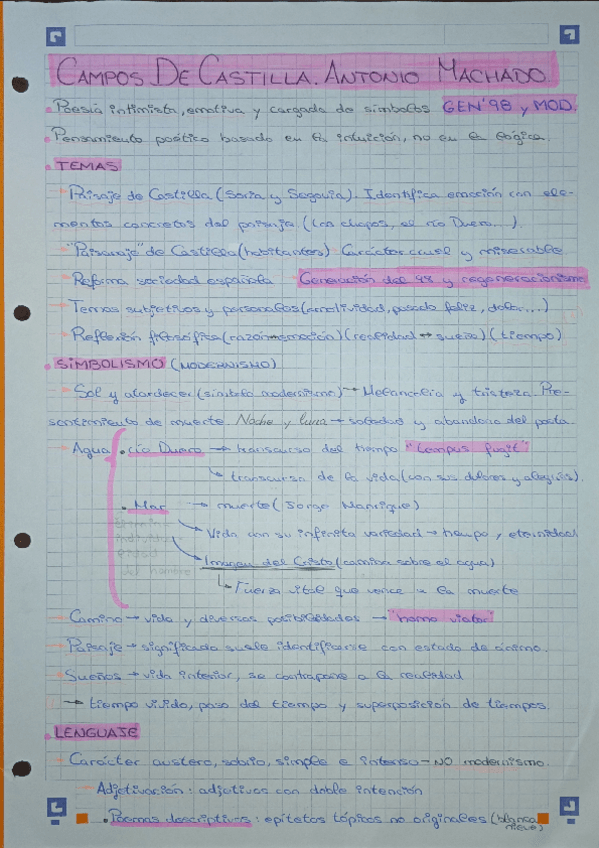 CAMPOS DE CASTILLA. ANTONIO MACHADO
• Poesía intimista, emotiva y cargada de símbolos GEN'98 y MOD.
• Pensamiento poético basado en la intuición, no en la lógica.
• TEMAS
→ Paisaje de Castilla (Soria y Segovia). Identifica emoción con ele-
mentos concretos del paisaje (los chopos, el río Duero...).
→ "Paisanaje" de Castilla (habitantes) Carácter cruel y miserable
→ Reforma sociedad española Generación del 98 y regeneracionismo
→ Temas subjetivos y personales (amotividad, pasado feliz, dolor...)
→ Reflexión filosófica (razón↔emoción) (realidad ↔ sueño) (tiempo)
• SIMBOLISMO (MODERNISMO)
→ Sol y atardecer (símbolo modernismo) → Melancolía y tristeza. Pre-
sentimiento de muerte. Noche y luna → soledad y abandono del poeta.
→ Agua • río Duero → transcurso del tiempo "tempus fugit"
→ transcurso de la vida (con sus dolores y alegrías).
• Mar → muerte (Jorge Manrique)
→ Vida con su infinita variedad → tiempo, eternidad
→ Imagen del Cristo (camina sobre el agua)
del hombre
↳ Fuerza vital que vence a la muerte
→ Camino → vida y diversas posibilidades → "homo viator"
→ Paisaje → significado suele identificarse con estado de ánimo.
→ Sueños → vida interior, se contrapone a la realidad
→ tiempo vivido, paso del tiempo y superposición de tiempos.
• LENGUAJE
→ Carácter austero, sobrio, simple e intenso - NO modernismo.
→ Adjetivación: adjetivos con doble intención
• Poemas descriptivos: epítetos tópicos no originales (blanca
nieve)